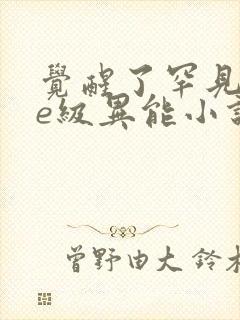 覺醒了罕見
e級異能小說
曾野由大 鈴木